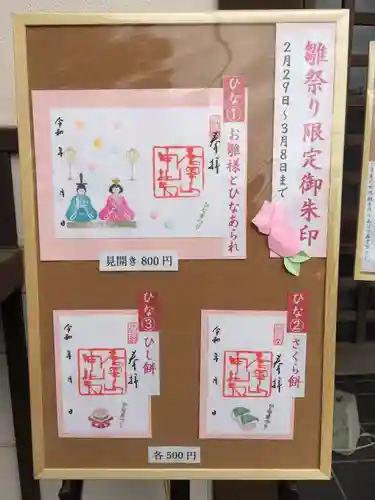 雛祭り限定御朱印
2月29日～3月8日まで
ひな① お雛様とひなあられ
奉拝
令和 年 月 日
見開き 800円
ひな② さくら餅
奉拝
令和 年 月 日
ひな③ ひし餅
奉拝
令和 年 月 日
各 500円